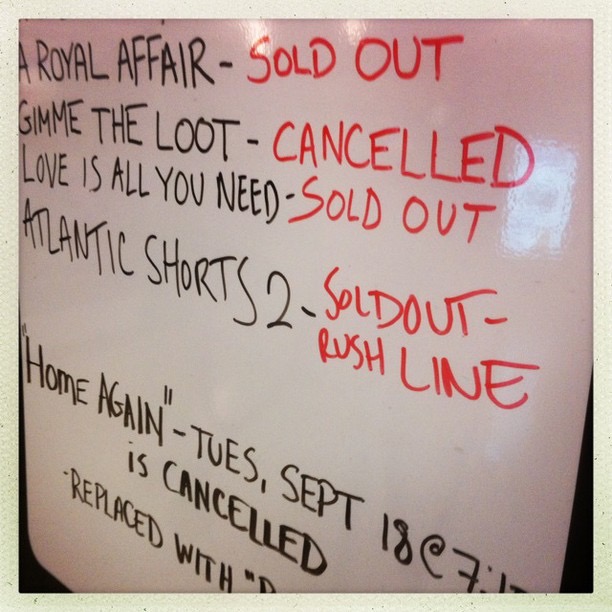 A ROYAL AFFAIR - SOLD OUT
GIMME THE LOOT - CANCELLED
LOVE IS ALL YOU NEED - SOLD OUT
ATLANTIC SHORTS 2 - SOLDOUT -
RUSH LINE
"HOME AGAIN" - TUES, SEPT 18 @ 7:
IS CANCELLED
- REPLACED WITH "